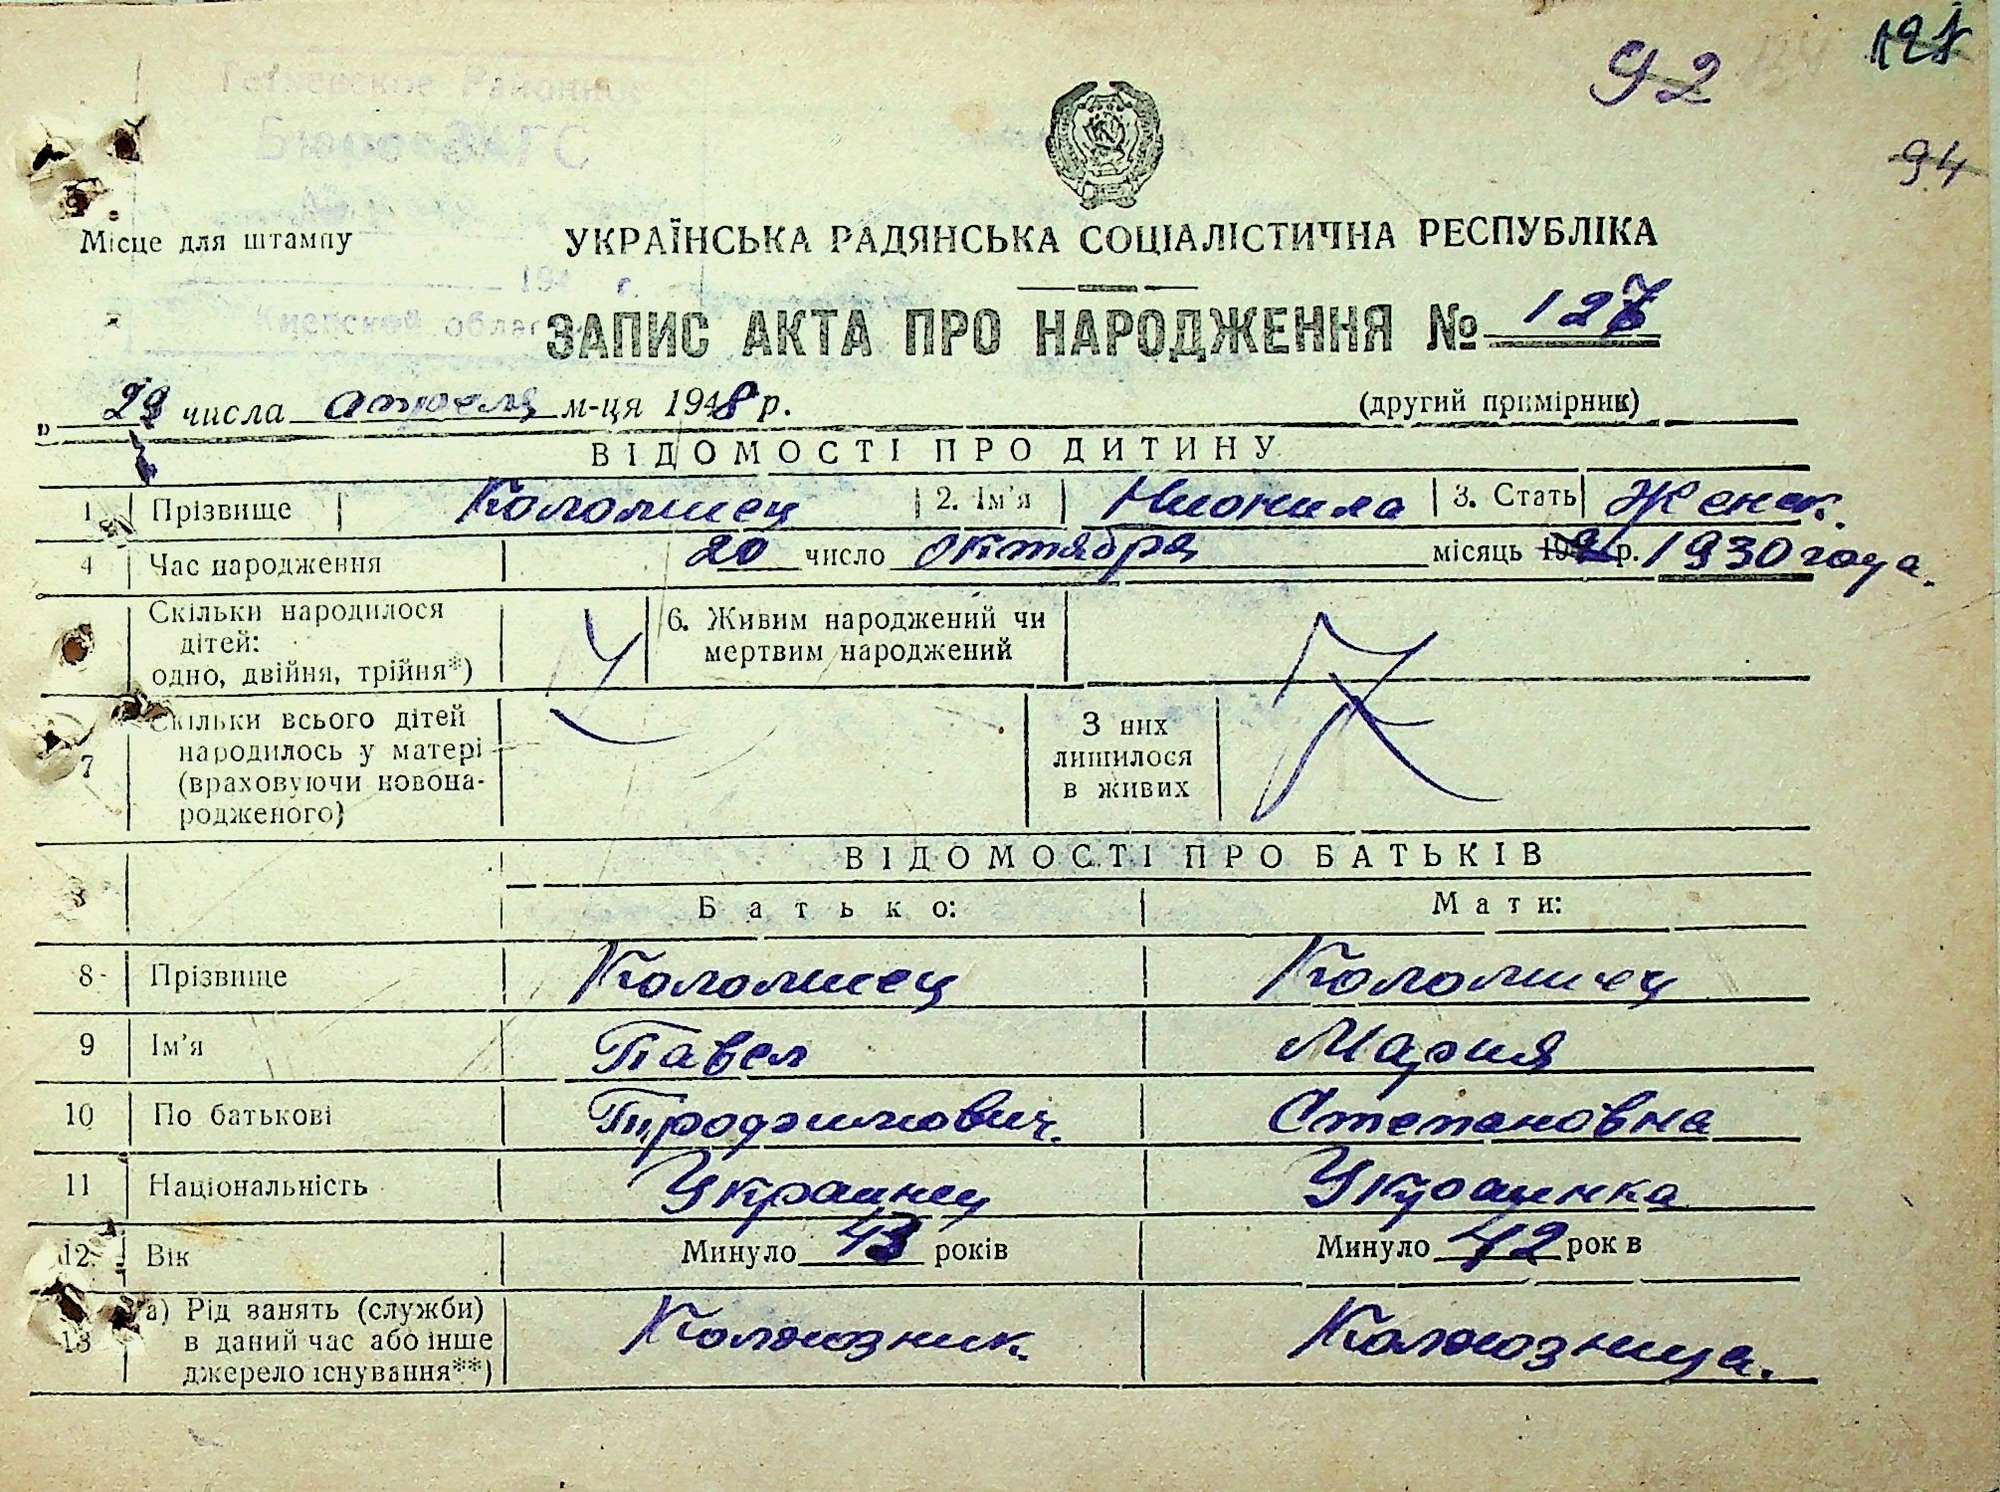 92
94
Бюро ЗАГС
Місце для штампу
УКРАЇНСЬКА РАДЯНСЬКА СОЦІАЛІСТИЧНА РЕСПУБЛІКА
194 г.
Киевской облас
ЗАПИС АКТА ПРО НАРОДЖЕННЯ № 127
„ 29 числа апреля м-ця 1948 р.
(другий примірник)
ВІДОМОСТІ ПРО ДИТИНУ
1 Прізвище Коломиец 2. Ім'я Нионила 3. Стать Женск.
4 Час народження 20 число октября місяць 194 р. 1930 года.
Скільки народилося дітей: одно, двійня, трійня*)
6. Живим народжений чи мертвим народжений
7 Скільки всього дітей народилось у матері (враховуючи новонародженого)
З них лишилося в живих
ВІДОМОСТІ ПРО БАТЬКІВ
Батько: Мати:
8 Прізвище Коломиец Коломиец
9 Ім'я Павел Мария
10 По батькові Трофимович. Степановна
11 Національність Украинец Украинка
12. Вік Минуло 43 років Минуло 42 рок в
13 а) Рід занять (служби) в даний час або інше джерело існування**) Колхозник. Колхозница.